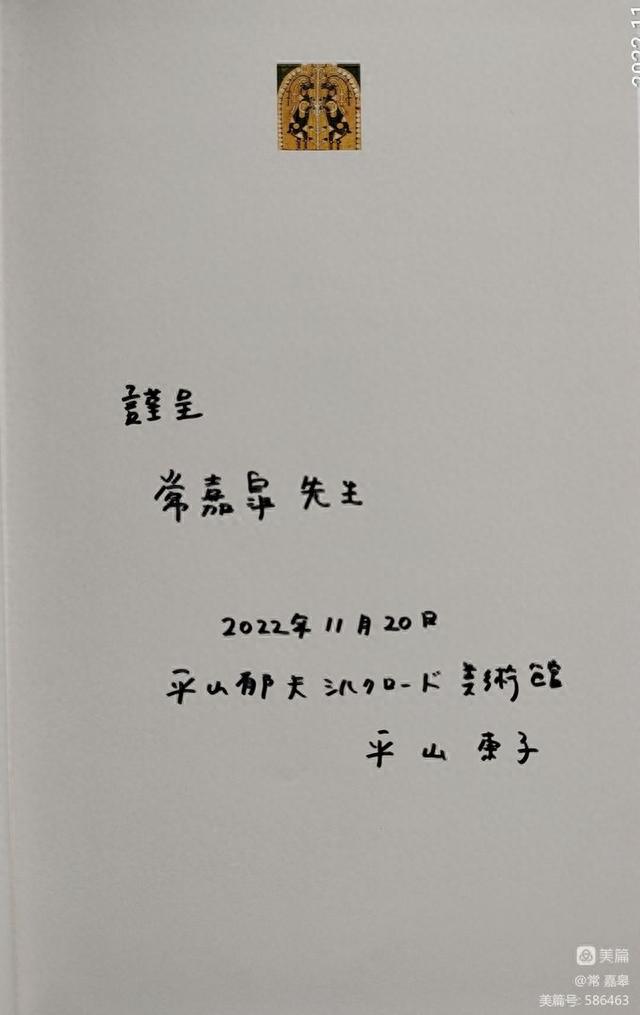 2022.11
謹呈
常嘉皐 先生
2022年11月20日
平山郁夫シルクロード美術館
平山 東子
美篇
@常 嘉皋
美篇号: 586463